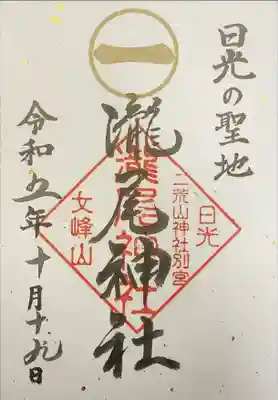 日光の聖地
一
瀧尾神社
瀧尾神社
日光
二荒山神社別宮
女峰山
令和五年十月十九日